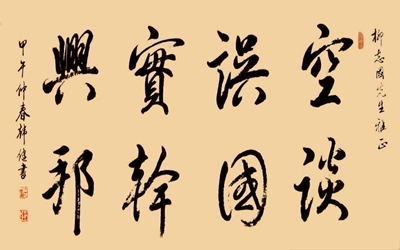 柳志國先生雅正
空談
誤國
實幹
興邦
甲午仲春韓健書